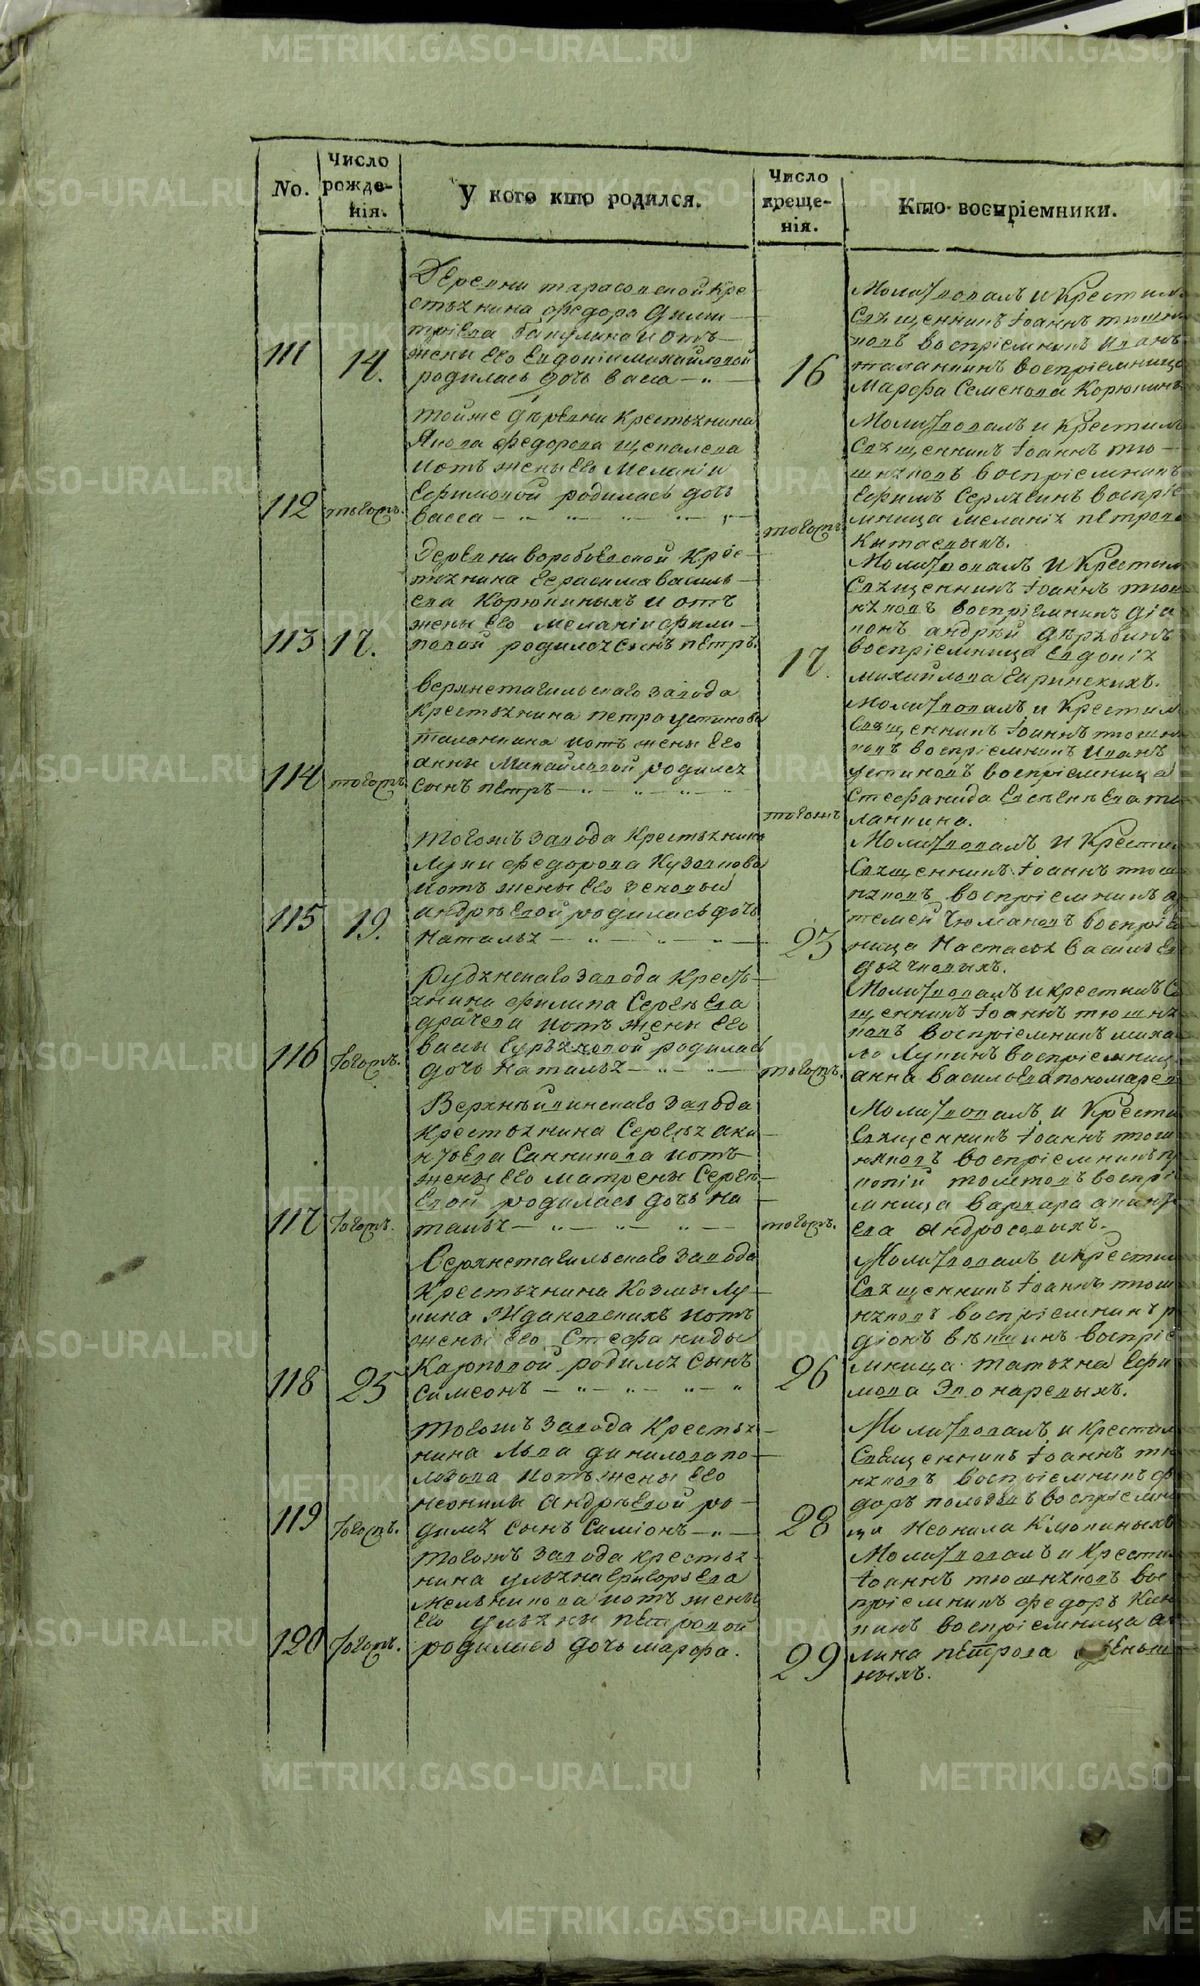 No.
Число рожденія.
У кого кто родился.
Число крещенія.
Кто воспріемники.
111
14.
Деревни тарасовской кре
стьянина федора дими
тріева бакулина и отъ
жены его евдокіи михайловой
родилась дочь васса
16
Молитвовалъ и крестил
священникъ іоаннъ тюшн
ковъ воспріемникъ иванъ
таланкинъ воспріемница
марфа семенова корюкина
112
тогожъ.
тойже деревни крестьянина
якова федорова щепалева
и отъ жены его меланіи
ефимовой родилась дочь
васса
тогожъ
молитвовалъ и крестилъ
священникъ іоаннъ тю
шняковъ воспріемникъ
ефимъ воспріе
мница меланія петрова
113
17.
деревни воробьевской кре
стьянина герасима василь
ева корюкиныхъ и отъ
жены его меланіи фили
повой родился сынъ петръ.
17.
молитвовалъ и крестил
священникъ іоаннъ тюш
няковъ воспріемникъ дія
конъ андрей дерябинъ
воспріемница евдокія
михайлова
114
тогожъ
верхнетагильскаго завода
крестьянина петра устинова
таланкина и отъ жены его
анны михайловой родился
сынъ петръ
тогожъ
молитвовалъ и крестил
священникъ іоаннъ тюшня
ковъ воспріемникъ иванъ
устиновъ воспріемница
стефанида та
ланкина.
115
19.
тогожъ завода крестьянина
луки федорова кузовкова
и отъ жены его
андреевой родилась дочь
наталья
23
молитвовалъ и крестил
священникъ іоаннъ тюш
няковъ воспріемникъ а
воспріем
ница настасья василье
дьячковыхъ.
116
тогожъ.
рудянскаго завода кресть
янина филипа сергеева
драчева и отъ жены его
вассы родилась
дочь наталья
тогожъ.
молитвовалъ и крестилъ св
щенникъ іоаннъ тюшня
ковъ воспріемникъ миха
ло лукинъ воспріемниц
анна васильева пономарев
117
тогожъ.
Верхнейвинскаго завода
крестьянина сергея аки
нтьева санникова и отъ
жены его матрены сергее
вой родилась дочь на
талья
тогожъ.
молитвовалъ и крести
священникъ іоаннъ тюш
няковъ воспріемникъ п
толстовъ воспрі
мница варвара
ева андросовыхъ.
118
25
верхнетагильскаго завода
крестьянина козмы лу
кина ждановскихъ и отъ
жены его стефаниды
карповой родился сынъ
самсонъ
26
молитвовалъ и крестил
священникъ іоаннъ тюш
няковъ воспріемникъ р
діонъ векшинъ воспріе
мница татьяна ефи
мова понаревыхъ.
119
тогожъ.
тогожъ завода крестья
нина льва данилова по
лозова и отъ жены его
неонилы андреевой ро
дился сынъ симіонъ
28
молитвовалъ и крестил
священникъ іоаннъ тю
няковъ воспріемникъ ф
доръ воспріемни
ца неонила клюкиныхъ
120
тогожъ.
тогожъ завода крестья
нина ульяна григорьева
мельникова и отъ жены
его ульяны петровой
родилась дочь марфа.
29
молитвовалъ и крести
іоаннъ тюшняковъ вос
пріемникъ федоръ
воспріемница
лина петрова
ныхъ.
METRIKI.GASO-URAL.RU